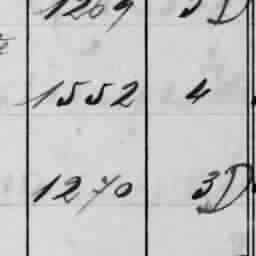 1269 3D
1552 4
1270 3D